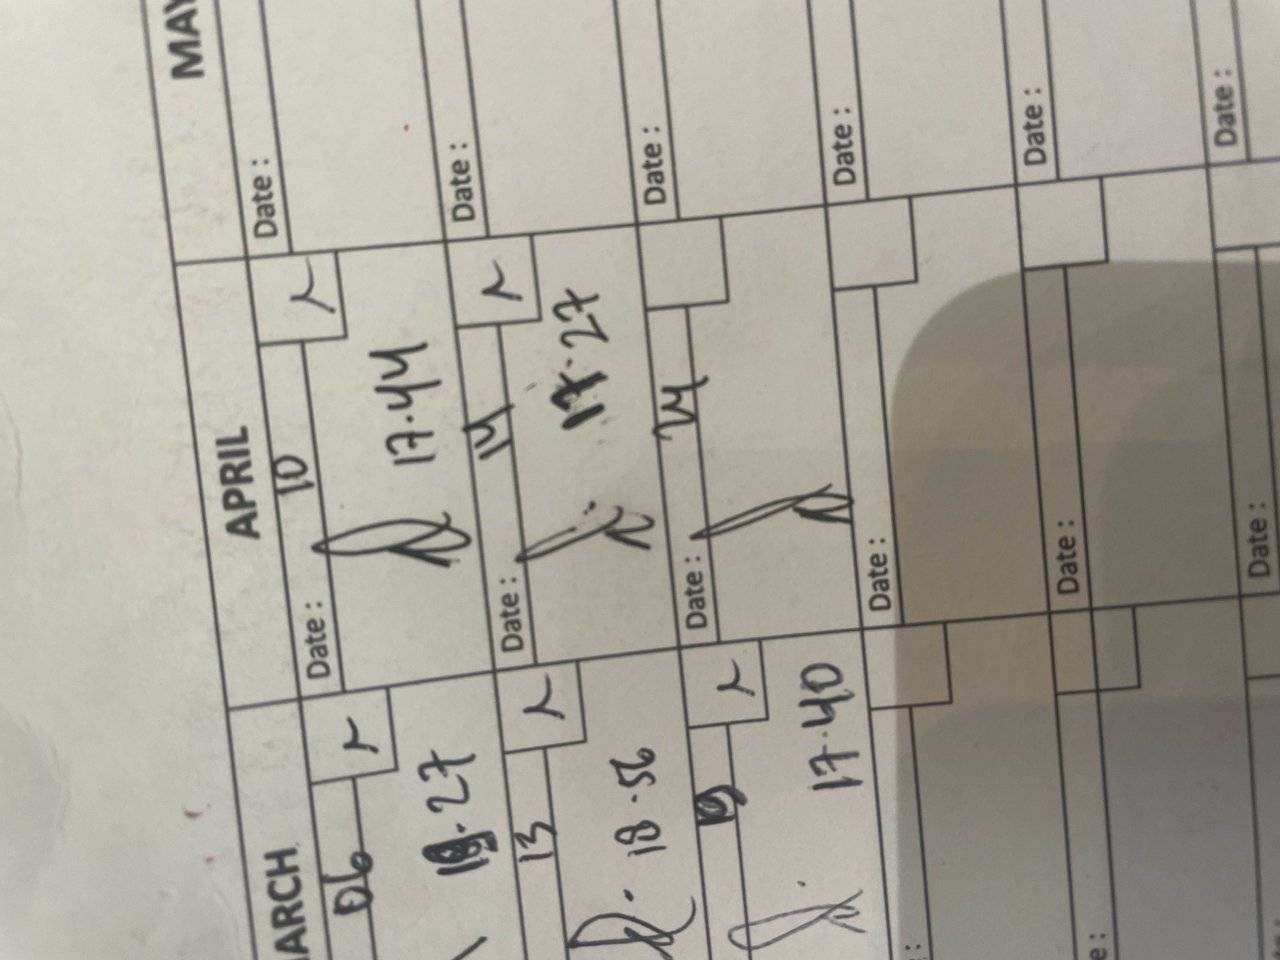 ARCH
06
27
13
18.56
17.40
APRIL
Date : 10
17.44
Date : 14
17.27
Date : 24
Date :
Date :
Date :
MAY
Date :
Date :
Date :
Date :
Date :
Date :